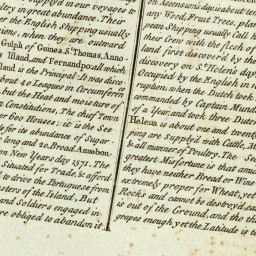 supplyd in our voyages to
try to great abundance. Their
the English shipping usually
ions, when they are outward
Gulph of Guinea S.t Thomas, Anno-
Iland, and Fernandpo; all which
land is the Principal: It was disco-
about 40 Leagues in Circumferen
but the Heat and moisture of
Constitutions. The chief Town
or 600 Houses: it is the See
for its abundance of Sugar
long and 20 Broad. Annobon-
on New Years day 1571. The
Situated for Trade, & afford
to drive the Portuguese from
asters of the Island, But
and Soldiers engaged in
re obliged to abandon it
Ascension is
any Wood, Fruit Trees, plan
pean Shipping usually Call
their Crew with the flesh of
land first discoverd by th
discovery on S.t Helen's day
Occupied by the English in
ruphon, when the Dutch took
manded by Captain Munda
of a Year, and took three Dutch
Helena is about one and twenty
ping are Supply'd with Cattle, Ho
& all manner of Poultry. The Se
greatest Misfortune is that amid
they have neither Bread or Wine
extremely proper for Wheat, yet
Rocks and cannot be destroy'd ea
is out of the Ground, and the th
grapes enough, yet the Latitude is to